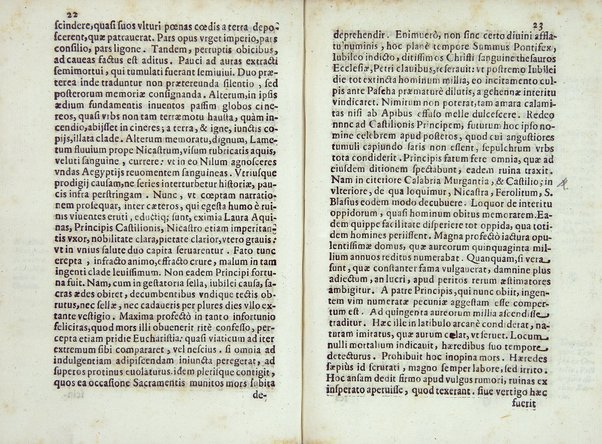 22
scindere, quasi suos vlturi pœnas cœdis a terra depo-
scerent, quæ patrauerat. Pars opus vrget imperio, pars
consilio, pars ligone. Tandem, perruptis obicibus,
ad caueas factus est aditus. Pauci ad auras extracti
semimortui, qui tumulati fuerant semiuiui. Duo præ-
terea inde traduntur non prætereunda silentio, sed
posterorum memoriæ consignanda. Alterum, in ipsis
ædium fundamentis inuentos passim globos cine-
reos, quasi vrbs non tam terræmotu hausta, quàm in-
cendio, abijsset in cineres; a terra, & igne, iunctis co-
pijs, illata clade. Alterum memoratu, dignum, Lame-
tum fluuium prope Nicastrum, visum rubricatis aquis,
veluti sanguine, currere: vt in eo Nilum agnosceres
vndas Aegyptijs reuomentem sanguineas. Vtriusque
prodigij causam, ne series interturbetur historiæ, pau-
cis infra perstringam. Nunc, vt ceptam narratio-
nem prosequar, inter cæteros, qui egesta humo è rui-
nis viuentes eruti, eductiq; sunt, eximia Laura Aquî
nas, Principis Castilionis, Nicastro etiam imperitan-
tis vxor, nobilitate clara, pietate clarior, vtero grauis:
vt in vnius salute duo capita seruarentur. Fato tunc
erepta, infracto animo, effracto crure, malum in tam
ingenti clade leuissimum. Non eadem Principi fortu-
na fuit. Nam, cum in gestatoria sella, iubilei causa, sa-
cras ædes obiret, decumbentibus vndique tectis ob-
rutus, nec sellæ, nec cadaueris per plures dies vllo ex-
tante vestigio. Maxima profectò in tanto infortunio
felicitas, quod mors illi obuenerit ritè confesso, per-
cepta etiam pridie Eucharistia: quasi viaticum ad iter
extremum sibi compararet, vel nescius. Si omnia ad
indulgentiam adipiscendam iniuncta peregerat, ad
superos protinus euolaturus. idem plerisque contigit,
quos ea occasione Sacramentis munitos mors subita
de-
23
deprehendir. Enimuerò, non sine certo diuini afflа-
tu numinis, hoc planè tempore Summus Pontifex,
Iubileo indicto, ditissimos Christi sanguine thesauros
Ecclesiæ, Petri clauibus, reserauit: vt postremo Iubilei
die tot extincta hominum millia, eo incitamento cul-
pis ante Pascha præmature dilutis, a gehennæ interitu
vindicaret. Nimirum non poterat, tam amara calami-
tas nisi ab Apibus effoso melle dulcescere. Redeo
nunc ad Castilionis Principem, futurum hoc ipso no-
mine celebrem apud posteros, quod cui angustiores
tumuli capiundo satis non essent, sepulchrum vrbs
tota condiderit. Principis fatum fere omnia, quæ ad
eiusdem ditionem spectabant, eadem ruina traxit.
Nam in citeriore Calabria Murgantia, & Castilo; in
vlteriore, de qua loquimur, Nicastra, Ferolitum, S.
Blasius eodem modo decubuere. Loquor de interitu
oppidorum, quasi hominum obitus memorarem. Ea-
dem quippe facilitate disperiere tot oppida, qua toti-
dem homines perijssent. Magna profectò iactura opu-
lentissimæ domus, quæ aureorum quinquaginta mil-
lium annuos reditus numerabat. Quanquam, si vera
sunt, quæ constanter fama vulgauerat, damnine plus
adiectum, an lucri, apud peritos rerum æstimatores
ambigitur. A patre Principis, qui nunc obijt, ingen-
tem vim numeratæ pecuniæ aggestam esse comper-
tum est. Ad quingenta aureorum millia ascendisse
traditur. Hæc ille in latibulo arcanè conderat, na-
turam imitatus, quæ aurum celat, vt seruet. Locum
nulli mortalium indicauit, hæredibus suo tempore
detecturus. Prohibuit hoc inopina mors. Hæredes
sæpius id scrutati, magno semper labore, sed irrito.
Hoc ansam dedit firmo apud vulgus rumori, ruinas ex
insperato aperuisse, quod texerant. siue vertigo hæc
fuerit